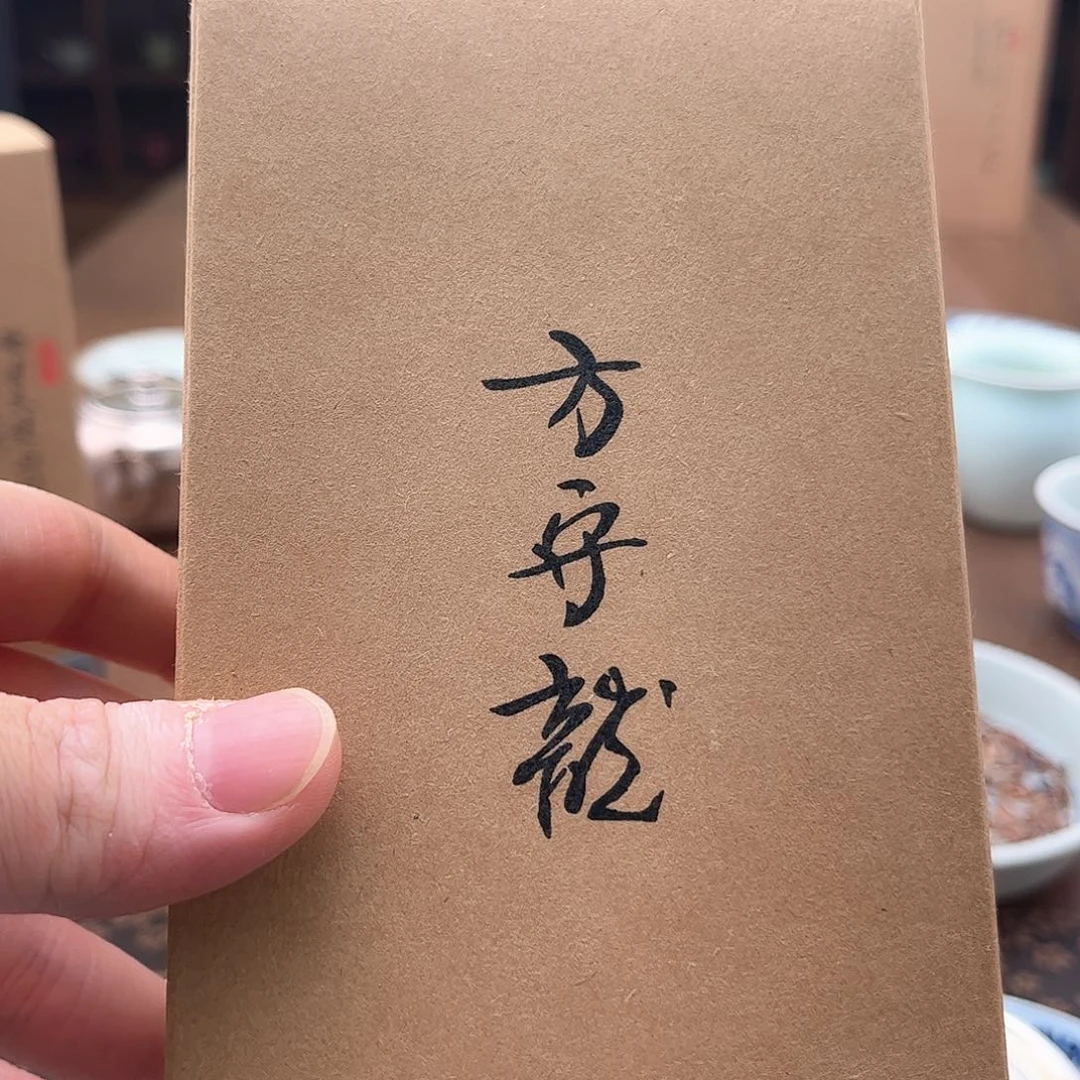 方守龍